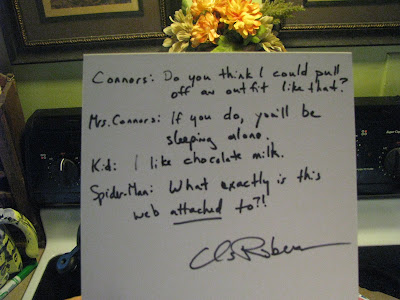 Connors: Do you think I could pull
off an outfit like that?
Mrs. Connors: If you do, you'll be
sleeping alone.
Kid: I like chocolate milk.
Spider-Man: What exactly is this
web attached to?!